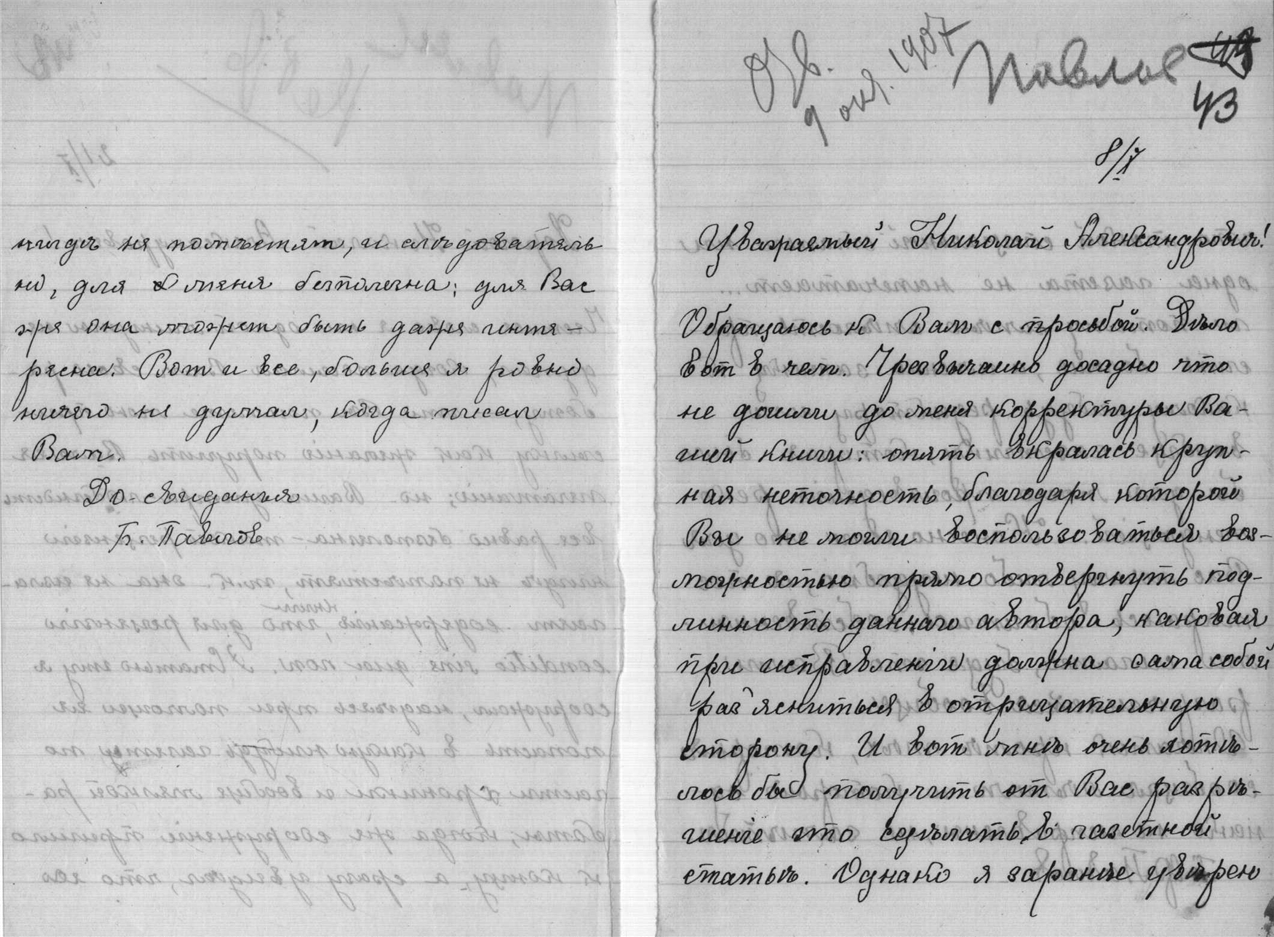 нигдѣ не помѣстят, и слѣдователь-
но, для меня безполезна; для Вас
же она может быть даже инте-
ресна. Вот и все, больше я ровно
ничего не думал, когда писал
Вам.
До-свиданья
Б. Павлов
Отв.
9 окт. 1907
Павлов
43
8/X
Уважаемый Николай Александрович!
Обращаюсь к Вам с просьбой. Дѣло
вот в чем. Чрезвычайно досадно что
не дошли до меня корректуры Ва-
шей книги: опять вкралась круп-
ная неточность, благодаря которой
Вы не могли воспользоваться воз-
можностью прямо отвергнуть под-
линность даннаго автора, каковая
при исправленіи должна сама собой
раз'ясниться в отрицательную
сторону. И вот мнѣ очень хотѣ-
лось бы получить от Вас разрѣ-
шеніе это сдѣлать в газетной
статьѣ. Однако я заранѣе увѣрен